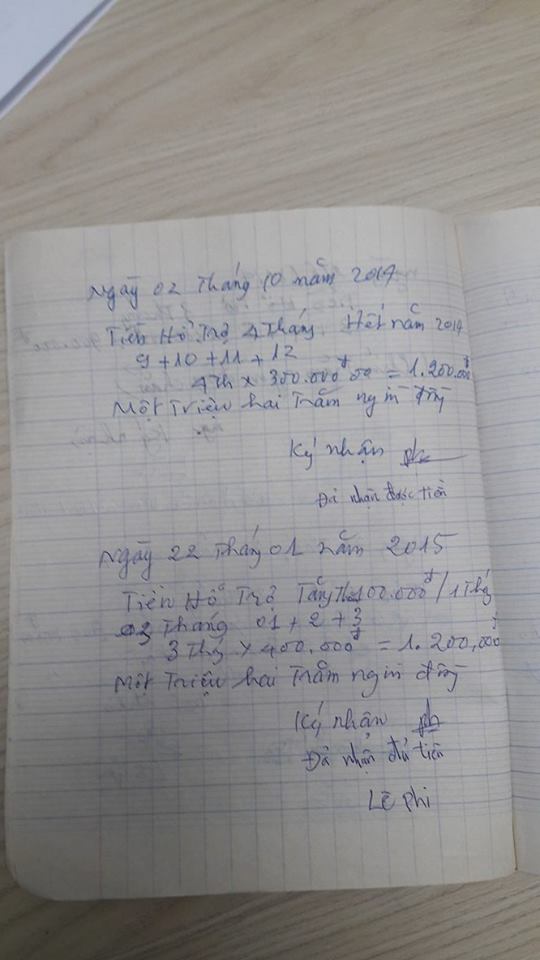 Ngày 02 Tháng 10 năm 2014
Tiền Hổ Trợ 4 Tháng Hết năm 2014
9 + 10 + 11 + 12
4th x 300.000đ = 1.200.000đ
Một Triệu hai Trăm ngìn đồng
Ký nhận
Đã nhận được tiền
Ngày 22 Tháng 01 năm 2015
Tiền Hổ Trợ Tăng 100.000đ/1Tháng
03 Tháng 01 + 2 + 3
3 Tháng x 400.000đ = 1.200.000đ
Một Triệu hai Trăm ngìn đồng
Ký nhận
Đã nhận đủ tiền
Lê Phi